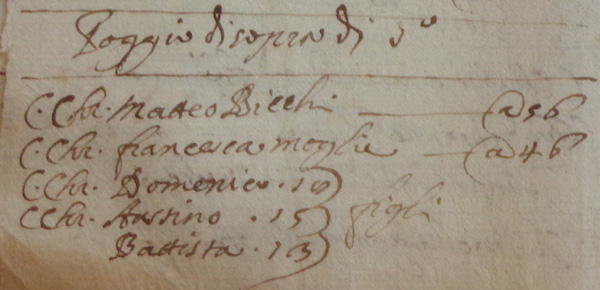 Poggio di sopra di 5°
C. Chr. Matteo Bicchi — a 56
C. Chr. francesca moglie — a 46
C. Chr. Domenico . 19
C Chr. . 15 figli
Battista . 13